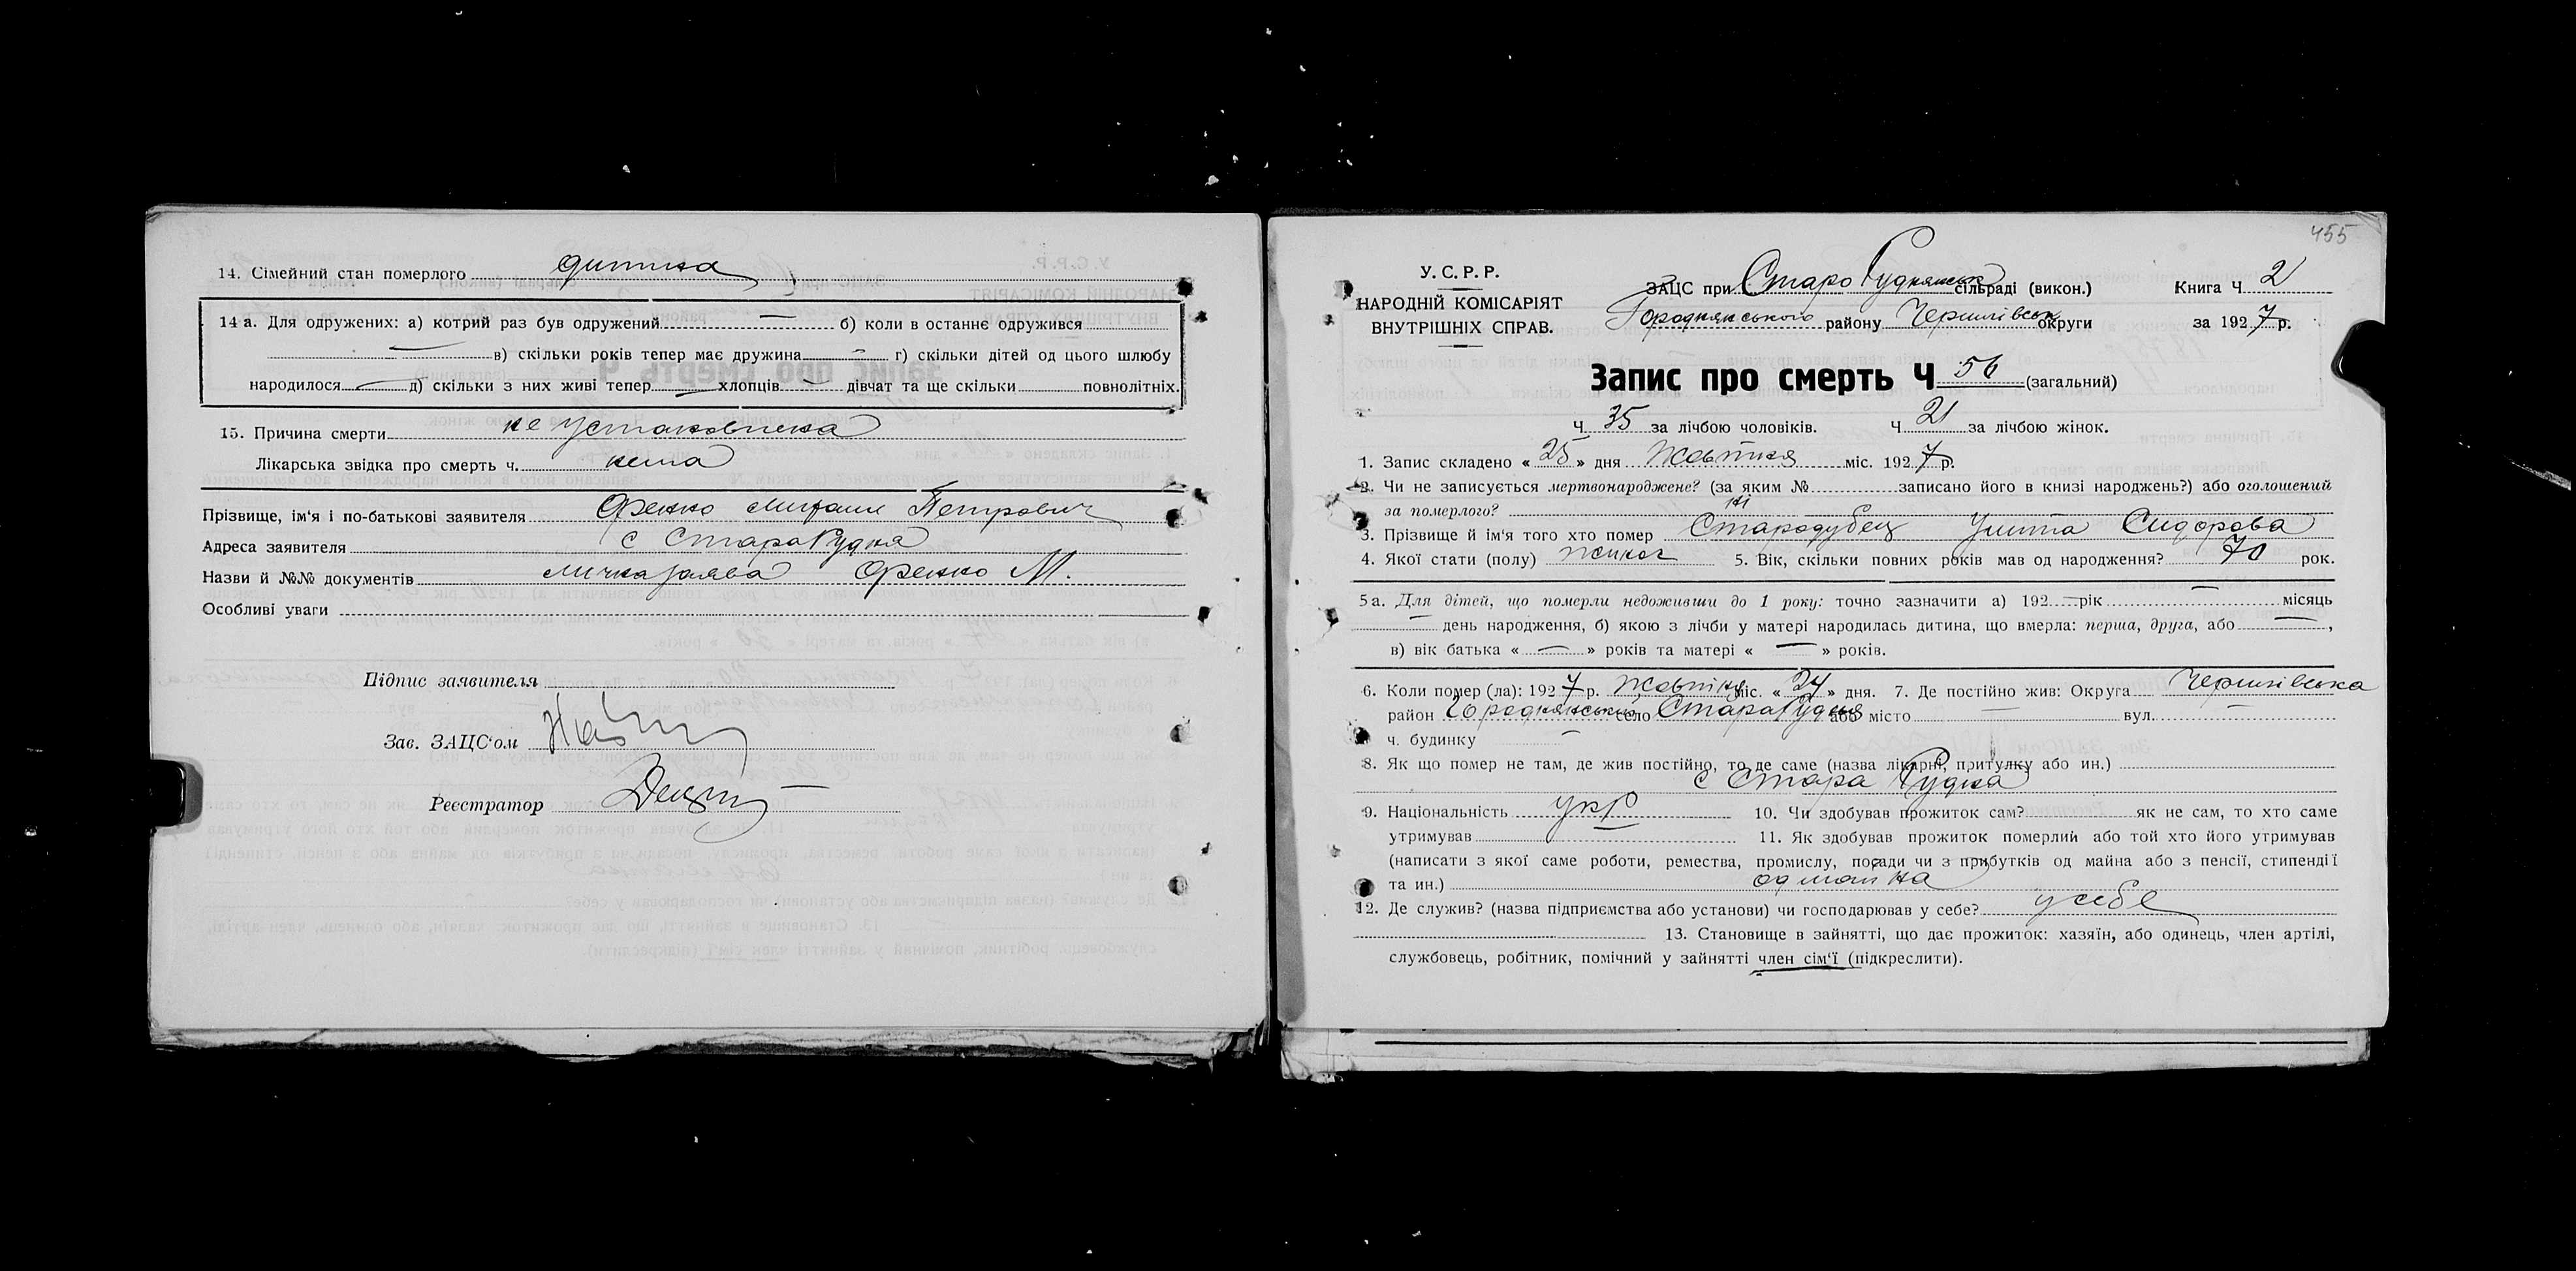 14. Сімейний стан померлого дитина
14 а. Для одружених: а) котрий раз був одружений — б) коли в останнє одружився
— в) скільки років тепер має дружина — г) скільки дітей од цього шлюбу
народилося — д) скільки з них живі тепер — хлопців — дівчат та ще скільки повнолітніх.
15. Причина смерти не установлена
Лікарська звідка про смерть ч. нема
Прізвище, ім'я і по-батькові заявителя Фенко Михаил Петрович
Адреса заявителя с Стара Рудня
Назви й №№ документів личка заява Фенко М.
Особливі уваги
Підпис заявителя
Зав. ЗАЦС'ом
Реєстратор
455
У. С. Р. Р.
НАРОДНІЙ КОМІСАРІЯТ
ВНУТРІШНІХ СПРАВ.
ЗАЦС при Старо Руднянськ сільраді (викон.) Книга Ч 2
Городнянського району Чернигівськ округи за 1927 р.
Запис про смерть Ч 56 (загальний)
Ч 35 за лічбою чоловіків. Ч 21 за лічбою жінок.
1. Запис складено « 25 » дня Жовтня міс. 1927 р.
2. Чи не записується мертвонароджене? (за яким № записано його в книзі народжень?) або оголошений
за померлого? ні
3. Прізвище й ім'я того хто помер Стародубец Улита Сидорова
4. Якої стати (полу) жиноч 5. Вік, скільки повних років мав од народження? 70 рок.
5 а. Для дітей, що померли недоживши до 1 року: точно зазначити а) 192 — рік — місяць
— день народження, б) якою з лічби у матері народилась дитина, що вмерла: перша, друга, або —,
в) вік батька « — » років та матері « — » років.
6. Коли помер (ла): 1927 р. Жовтня міс. « 24 » дня. 7. Де постійно жив: Округа Чернигівська
район Городнянський село Стара Рудня або місто — вул. —
ч. будинку —
8. Як що помер не там, де жив постійно, то де саме (назва лікарні, притулку або ин.)
с Стара Рудня
9. Національність укр 10. Чи здобував прожиток сам? як не сам, то хто саме
утримував — 11. Як здобував прожиток померлий або той хто його утримував
(написати з якої саме роботи, ремества, промислу, посади чи з прибутків од майна або з пенсії, стипендії
та ин.) од майна
12. Де служив? (назва підприємства або установи) чи господарював у себе? у себе
13. Становище в зайнятті, що дає прожиток: хазяїн, або одинець, член артілі,
службовець, робітник, помічний у зайнятті член сім'ї (підкреслити).